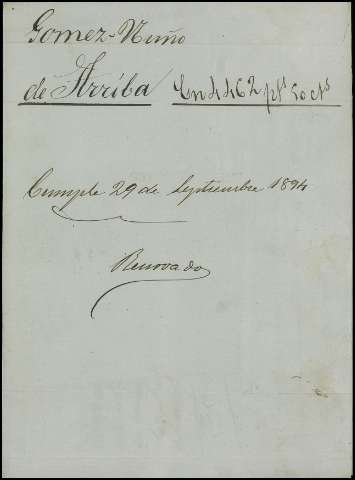 Gomez-Nuño
de Arriba En 4462 pts 50 cts
Cumple 29 de Septiembre 1894
Renovado